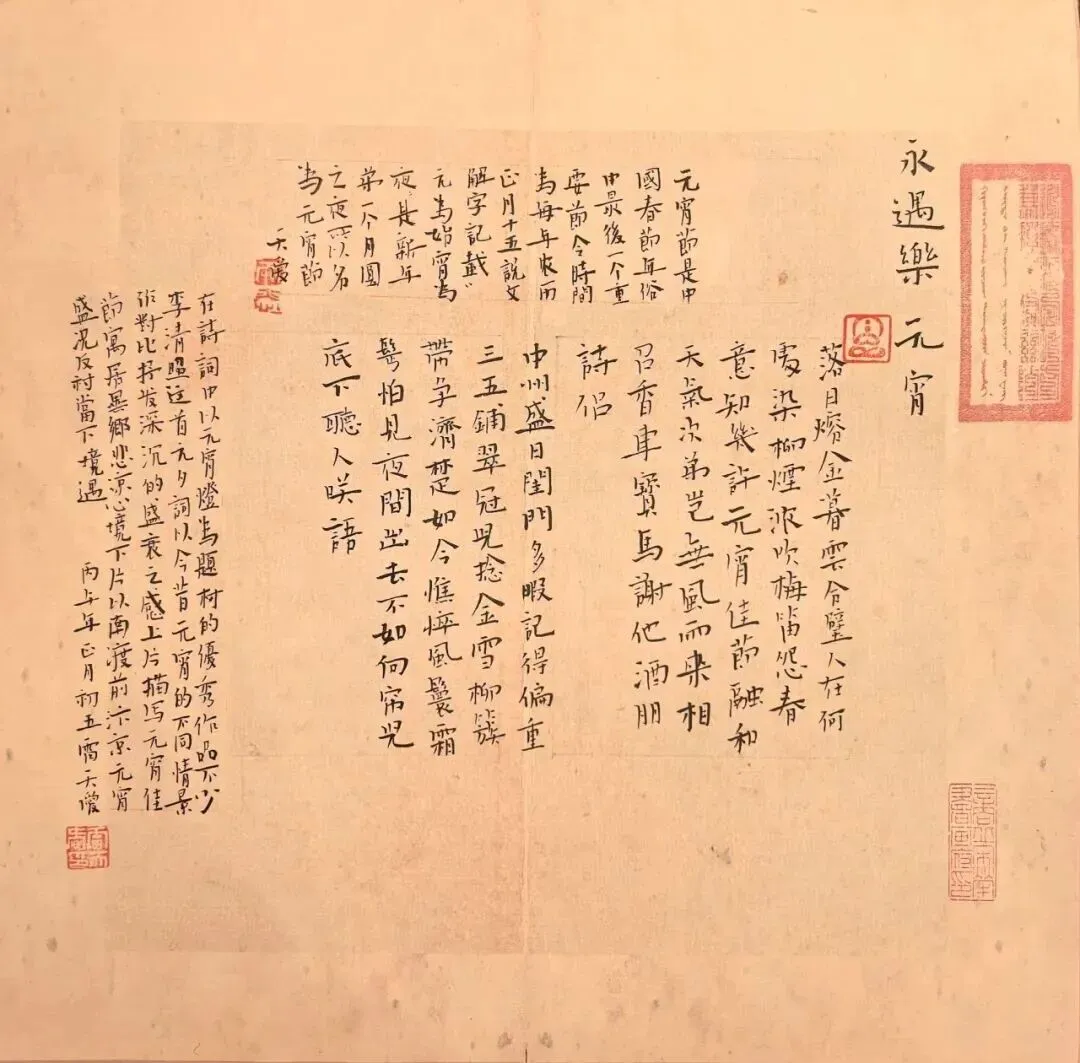 永遇樂 元宵
落日熔金暮雲合璧人在何
處染柳煙濃吹梅笛怨春
意知幾許元宵佳節融和
天氣次第豈無風雨來相
召香車寶馬謝他酒朋
詩侶
中州盛日閨門多暇記得偏重
三五鋪翠冠兒捻金雪柳簇
帶爭濟楚如今憔悴風鬟霜
髩怕見夜間出去不如向帘兒
底下聽人咲語
元宵節是中
國春節年俗
中最後一个重
要節令時間
為每年农历
正月十五說文
解字記載"
元為始宵為
夜是新年
第一个月圓
之夜所以名
為元宵節
天愛
在詩詞中以元宵燈為題材的優秀作品不少
李清照這首元夕詞以今昔元宵的不同情景
作對比抒发深沉的盛衰之感上片描写元宵佳
節寓居異鄉悲凉心境下片以南渡前汴京元宵
盛況反衬當下境遇 丙午年正月初五雷天愛